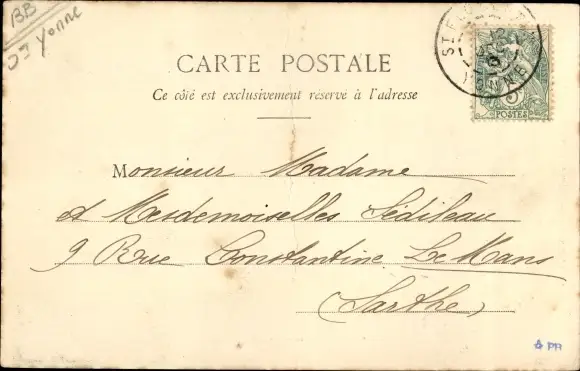 BB
Dt Yonne
CARTE POSTALE
Ce côté est exclusivement réservé à l'adresse
POSTES
Monsieur Madame
et Mesdemoiselles Sédileau
9 Rue Constantine Le Mans
(Sarthe)